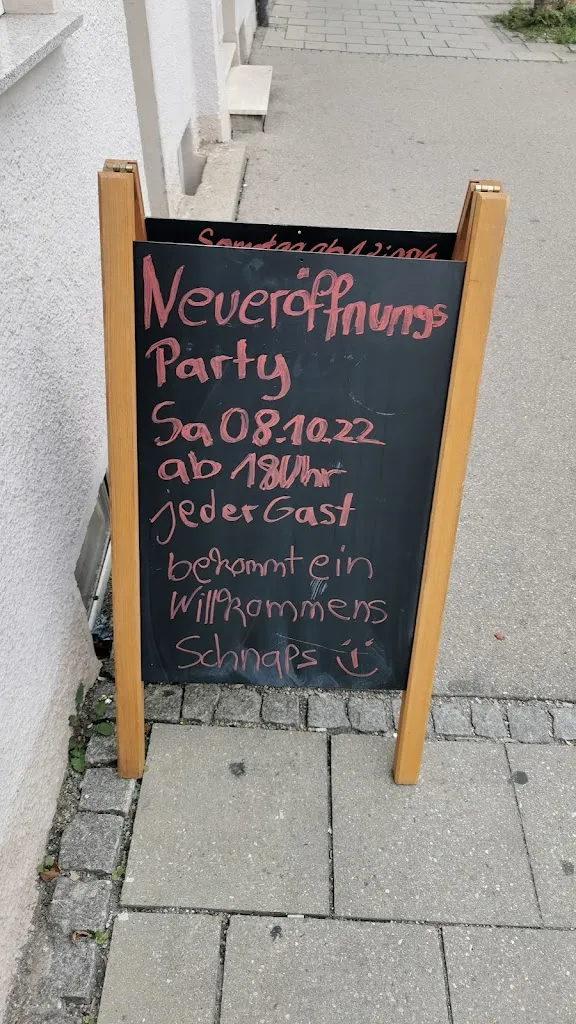 Samstag ab
Neueröffnungs
Party
Sa 08.10.22
ab 18Uhr
jeder Gast
bekommt ein
Willkommens
Schnaps